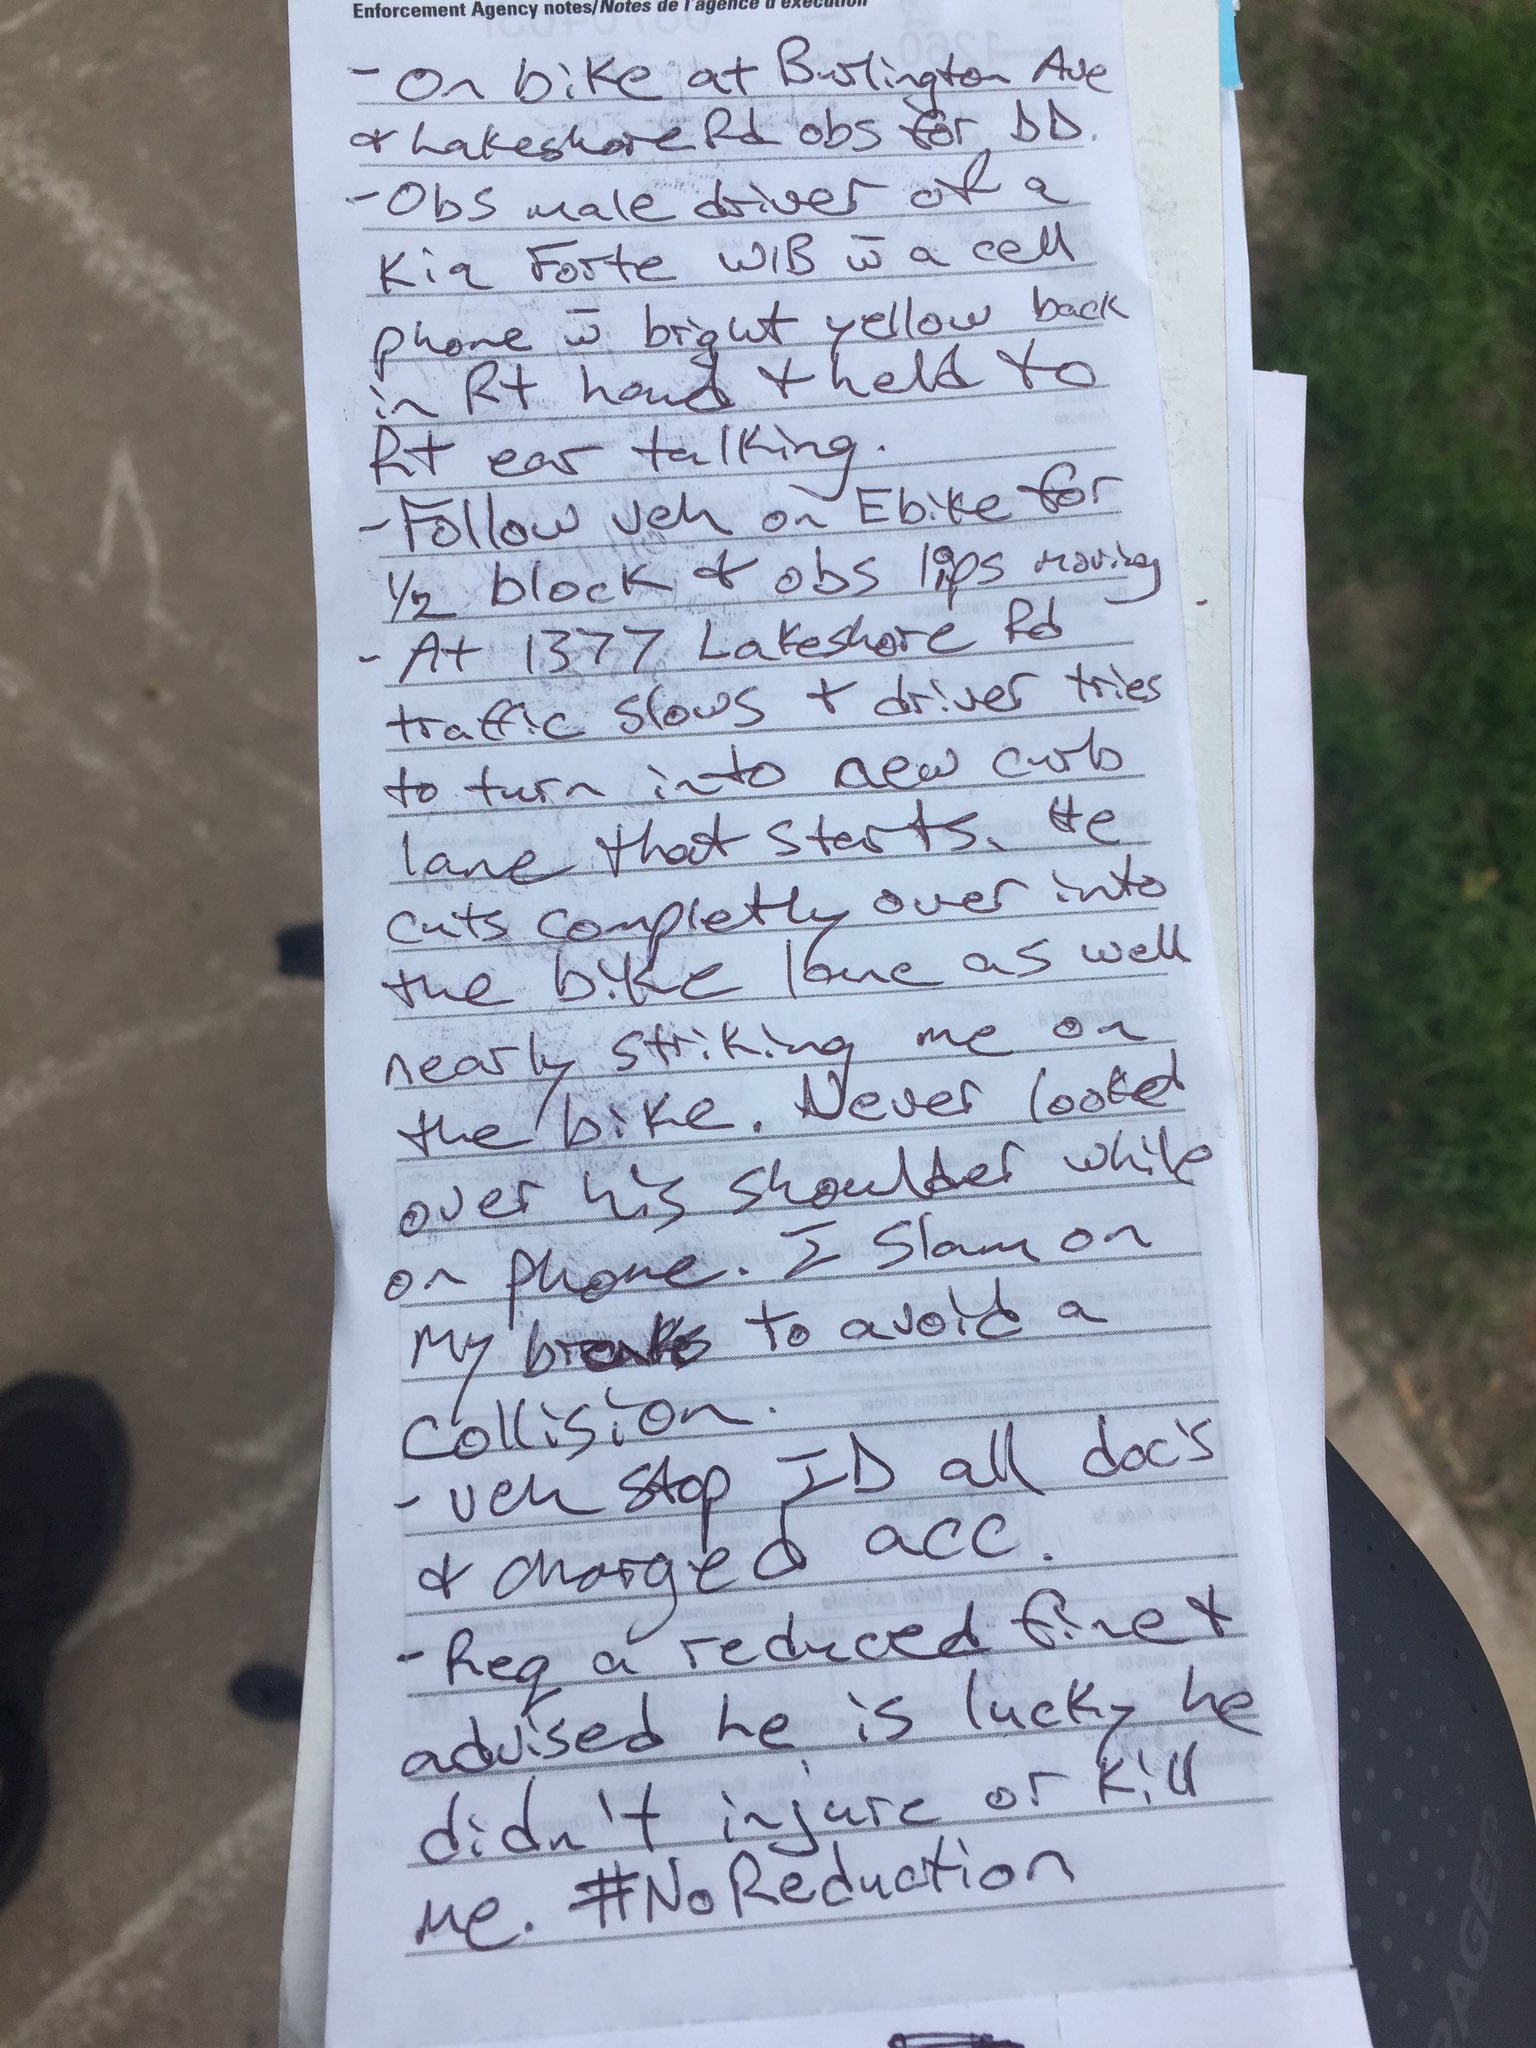 Enforcement Agency notes/Notes de l'agence d'exécution
- On bike at Burlington Ave
& Lakeshore Rd obs for DD.
- Obs male driver of a
Kia Forte W/B w̄ a cell
phone w̄ bright yellow back
in Rt hand & held to
Rt ear talking.
- Follow veh on Ebike for
1/2 block & obs lips moving
- At 1377 Lakeshore Rd
traffic slows & driver tries
to turn into new curb
lane that starts. He
cuts completly over into
the bike lane as well
nearly striking me on
the bike. Never looked
over his shoulder while
on phone. I slam on
My brakes to avoid a
collision.
- veh stop ID all doc's
& charged acc.
- Req a reduced fine &
advised he is lucky he
didn't injure or kill
me. #NoReduction
PAGER